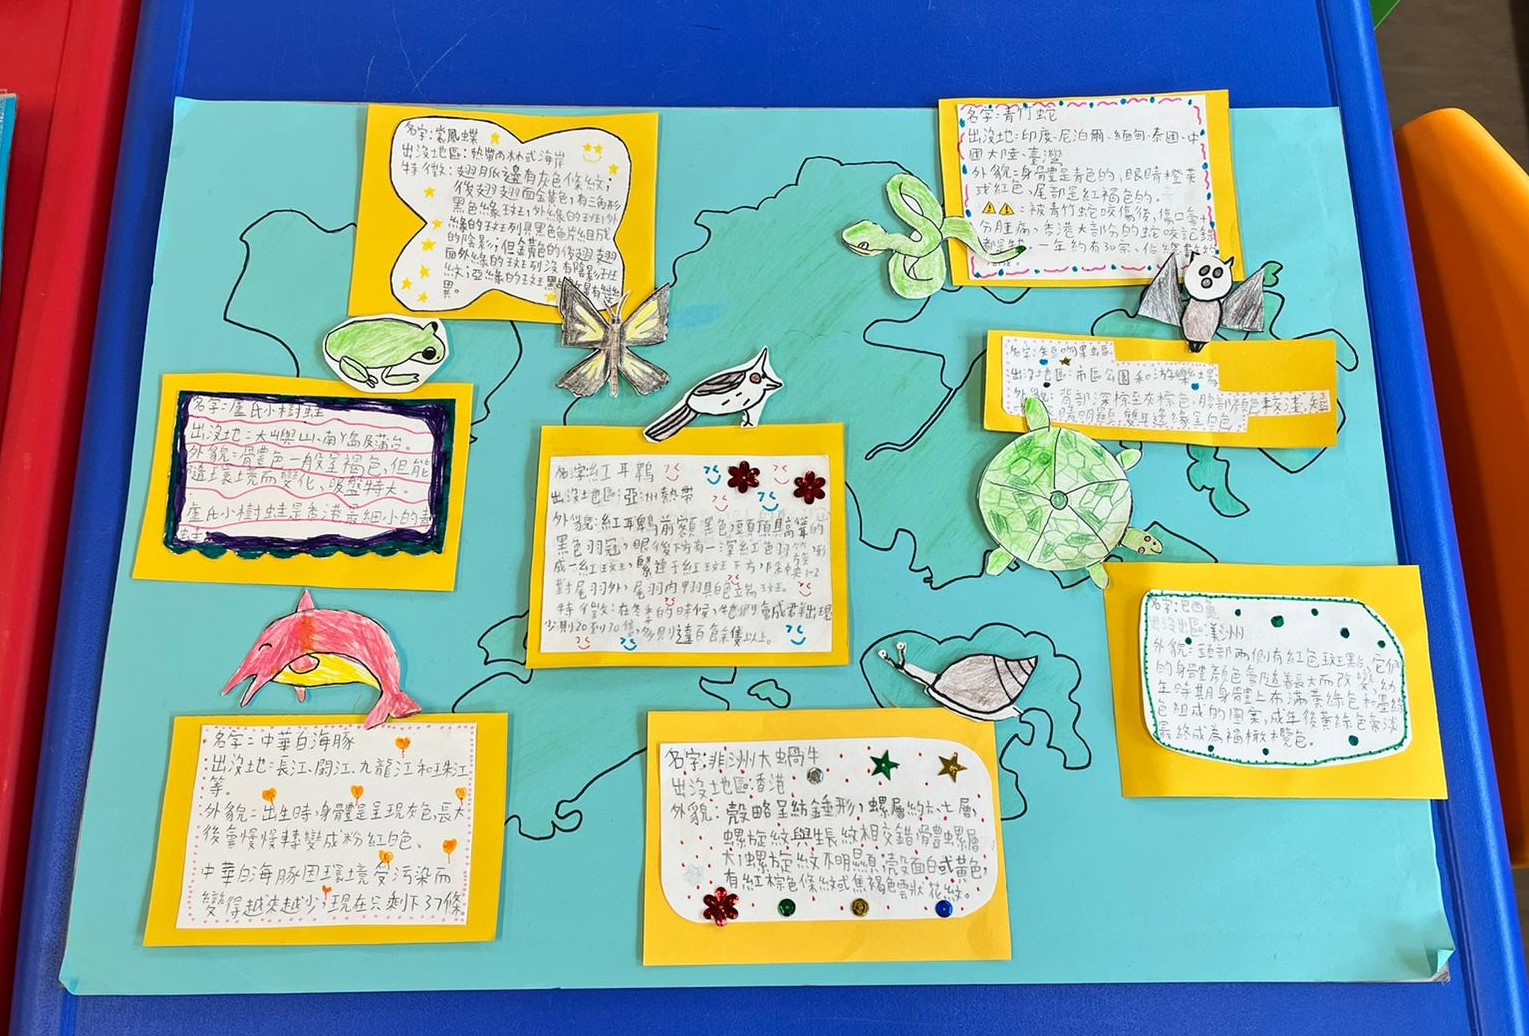 名字:裳鳳蝶
出沒地區:熱帶雨林或海岸
特徵:翅脈邊有灰色條紋;
後翅翅面金黃色,有三角形
黑色緣斑,外緣的斑外
緣的斑列具黑色鱗片組成
的陰影;但金黃色的後翅翅
面外緣的斑列沒有陰影
紋;亞緣的斑
名字:青竹蛇
出沒地:印度、尼泊爾、緬甸、泰國、中
國大陸、臺灣
外貌:身體是青色的,眼睛橙黃
或紅色,尾部是紅褐色的。
:被青竹蛇咬傷後,傷口會十
分腫痛,香港大部份的蛇咬記錄
一年約有30宗,佔
名字:
出沒地區:市區公園和遊樂場
外貌:背部深棕至灰棕色,腹部顏色較淺,
名字:盧氏小樹蛙
出沒地:大嶼山、南丫島及蒲台。
外貌:身體色一般呈褐色,但能
隨環境而變化,吸盤特大。
盧氏小樹蛙是香港最細小的
名字:紅耳鵯
出沒地區:亞洲熱帶
外貌:紅耳鵯前額黑色,頭頂具高聳的
黑色羽冠,眼後下方有一深紅色羽
成一紅斑,
對尾羽外,尾羽內
特徵:在冬季的時候,牠們會成群出現
少則20到30隻,多則達百餘隻以上。
名字:巴西龜
出沒出區:美洲
外貌:頭部兩側有紅色斑點,它們
的身體顏色會隨着長大而改變,幼
生時期身體上布滿黃綠色和墨綠
色組成的圖案,成年後黃綠色會淡
最終成為褐橄欖色。
名字:中華白海豚
出沒地:長江、閩江、九龍江和珠江
等。
外貌:出生時,身體是呈現灰色,長大
後會慢慢轉變成粉紅色。
中華白海豚因環境受污染而
變得越來越少,現在只剩下37條
名字:非洲大蝸牛
出沒地區:香港
外貌:殼略呈紡錘形,螺層約六七層,
螺旋紋與生長紋相交錯,體螺層
大,螺旋紋不明顯,殼面白或黃色,
有紅棕色條紋或焦褐色雲狀花紋。